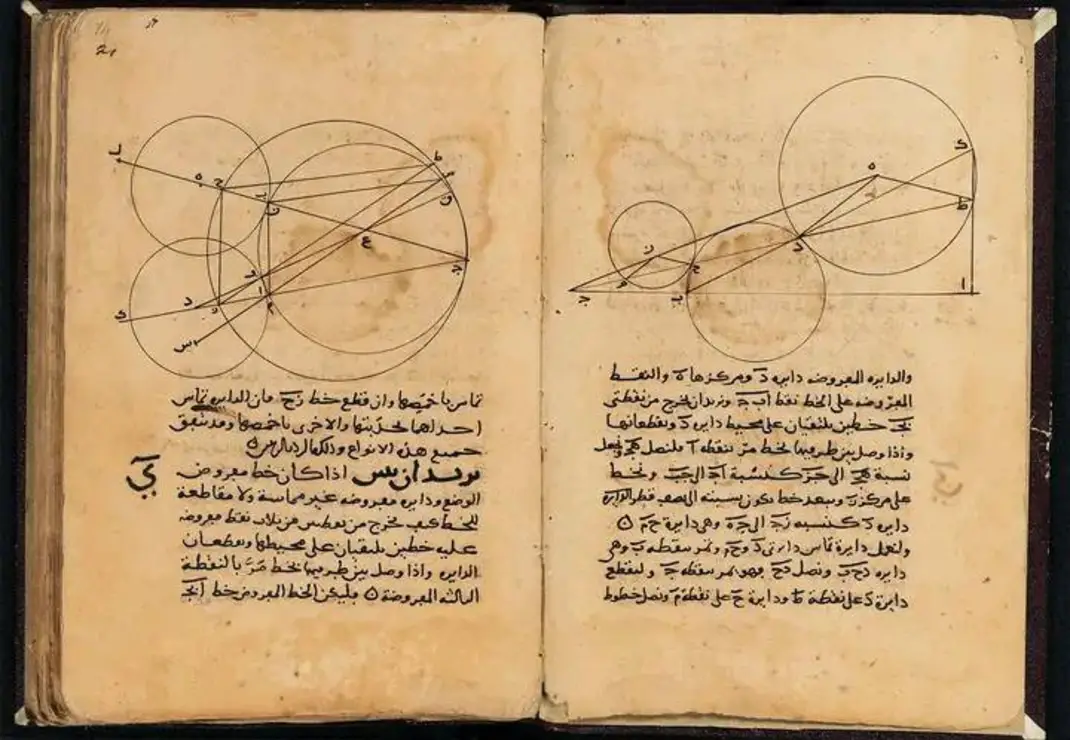 تماس باخمصها وان قطع خط زح فان الدايره تماس
احداهما بحدبتها والاخرى باخمصها وقد تتفق
جميع هذه الانواع وذلك
نريد ان نبين اذا كان خط مفروض
الوضع ودايره مفروضه غير مماسة ولا مقاطعة
للخط كيف نخرج من نقطتين من ثلاث نقط مفروضه
عليه خطين يلتقيان على محيطها ويقطعان
الدايره واذا وصل بين طرفيهما بخط مر بالنقطة
الثالثه المفروضة فليكن الخط المفروض خط ابج
والدايره المفروضه دايره د ومركزها ه والنقط
المفروضه على الخط نقط اب ج ونريد ان نخرج من نقطتي
بج خطين يلتقيان على محيط دايره د ويقطعانها
واذا وصل بين طرفيهما بخط مر بنقطه ا فلنصل هج ونجعل
نسبة هج الى جز كنسبة اج الى جب ونخط
على مركز ز وببعد خط يكون نسبته الى نصف قطر الدايره
دايره د كنسبه زج الى جه وهي دايرة حم
ولنعمل دايرة تماس دايرتي د وحم وتمر بنقطه ب وهي
دايره دحب ونصل دح فهو يمر بنقطه ج ولتقطع
دايرة د على نقطة ط ودايرة ح على نقطة م ونصل خطوط